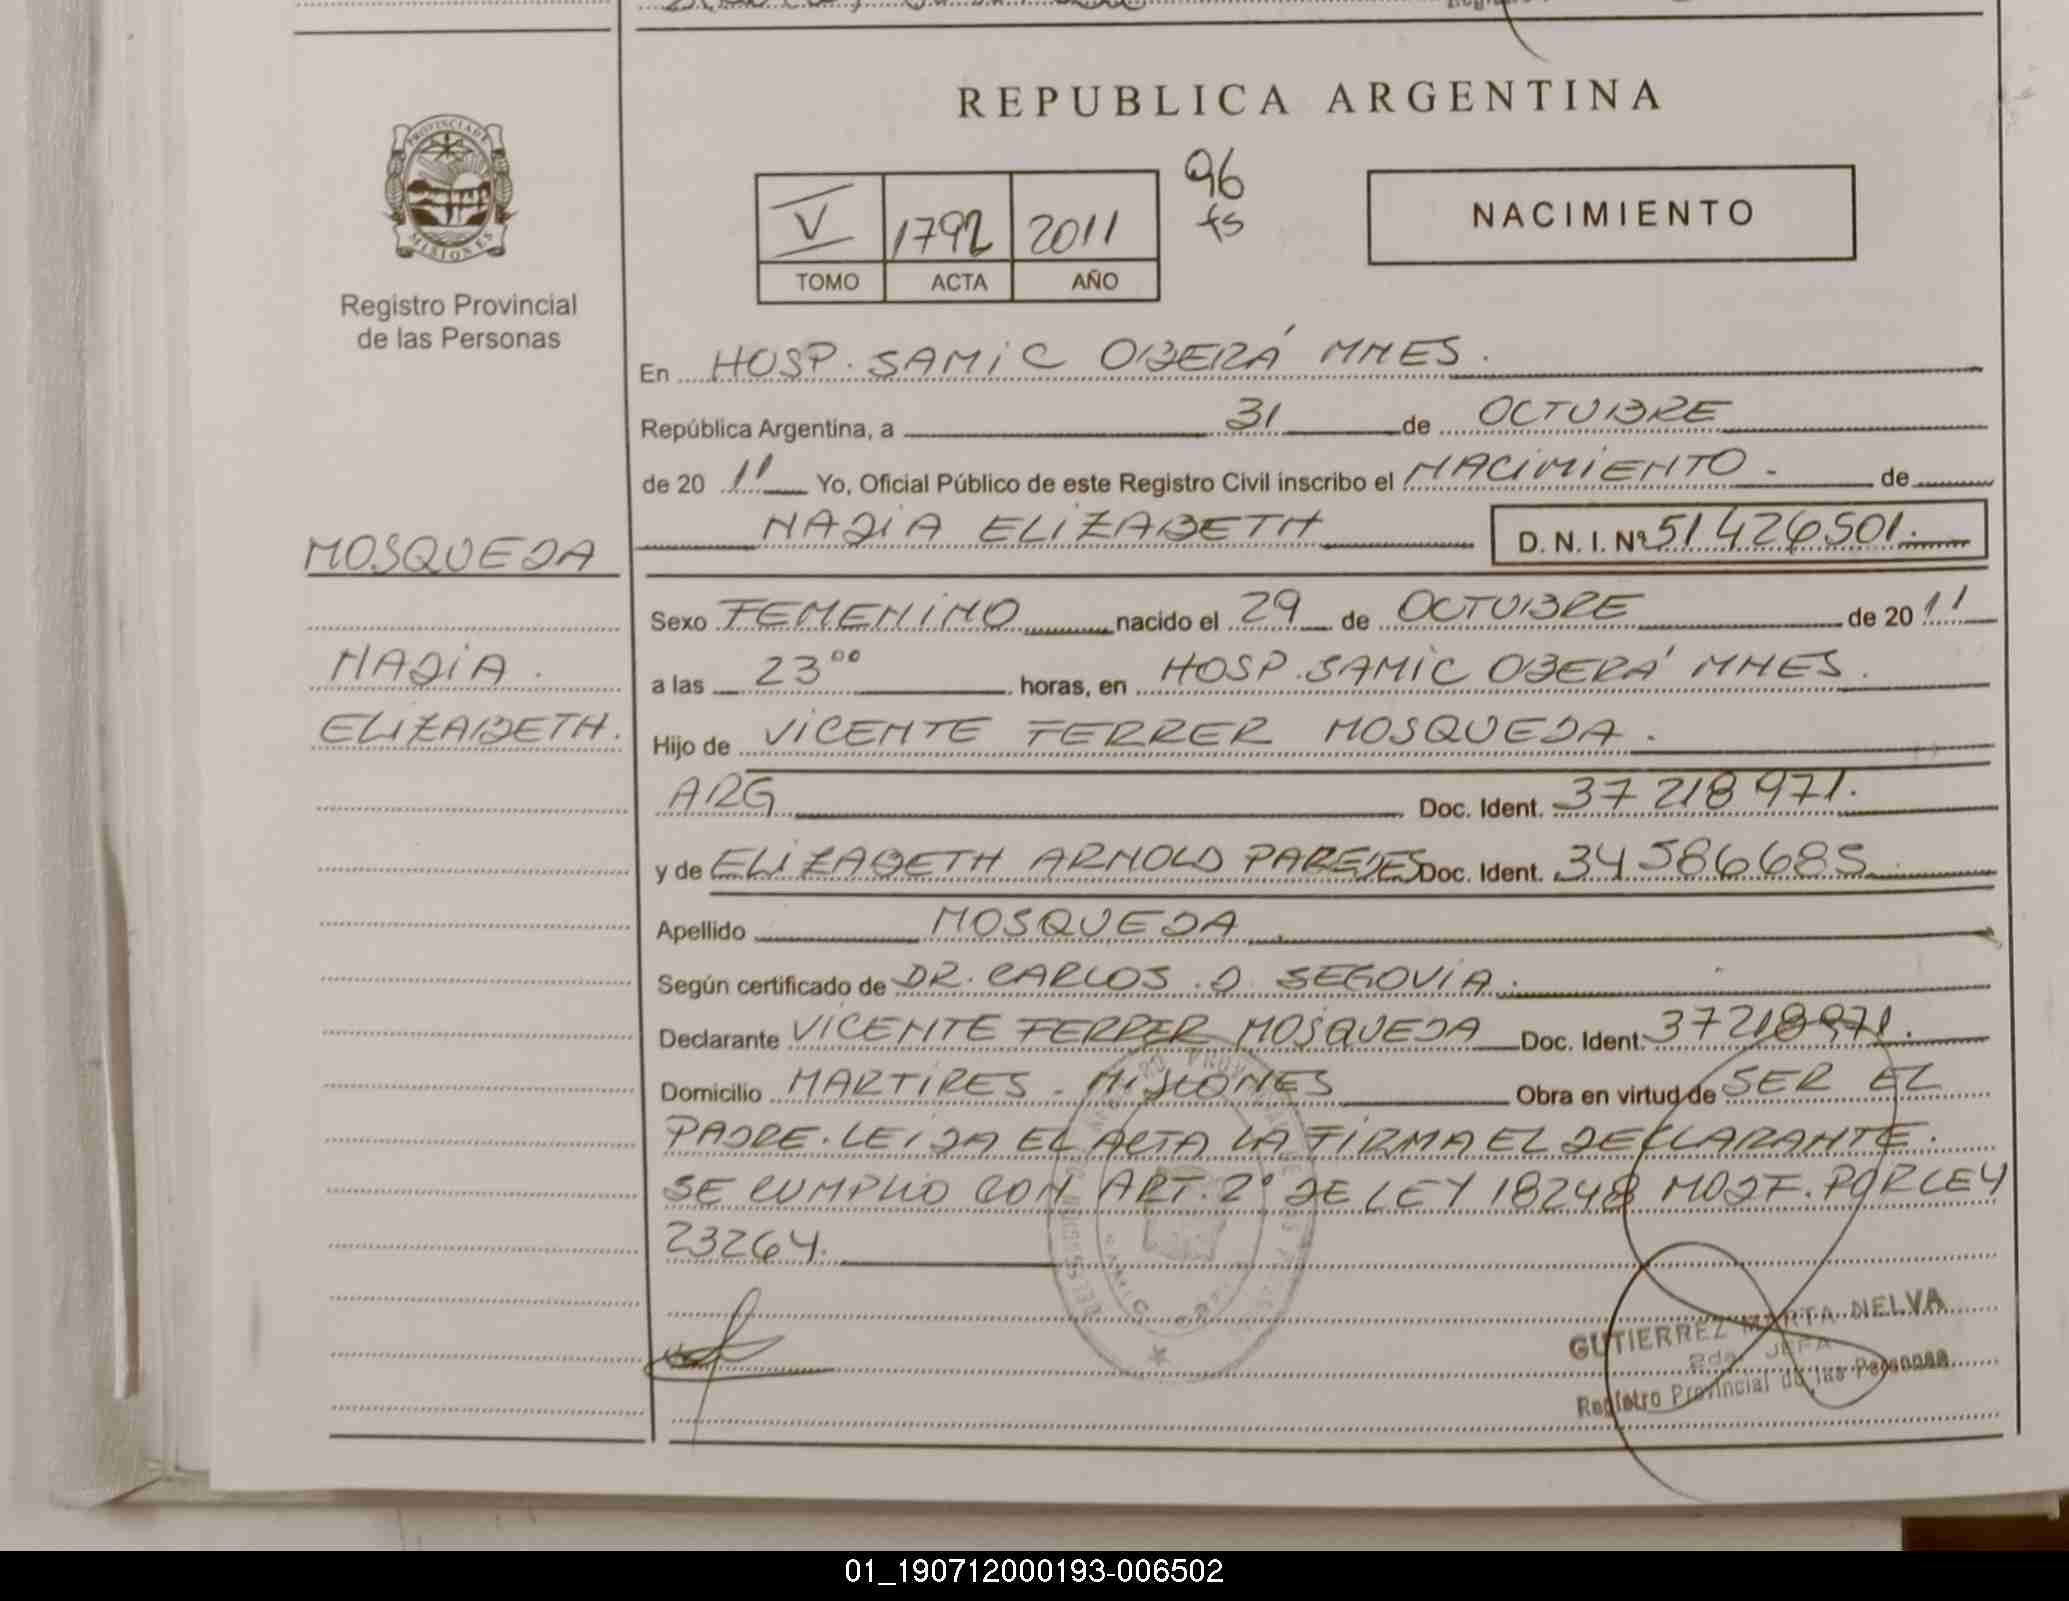 REPUBLICA ARGENTINA
PROVINCIA DE
MISIONES
Registro Provincial
de las Personas
V 1792 2011
TOMO ACTA AÑO
96
fs
NACIMIENTO
En HOSP. SAMIC OBERÁ MNES.
República Argentina, a 31 de OCTUBRE
de 20 11 Yo, Oficial Público de este Registro Civil inscribo el NACIMIENTO. de
NADIA ELIZABETH D. N. I. Nº 51426501.
MOSQUEDA
NADIA.
ELIZABETH.
Sexo FEMENINO nacido el 29 de OCTUBRE de 20 11
a las 23⁰⁰ horas, en HOSP. SAMIC OBERÁ MNES.
Hijo de VICENTE FERRER MOSQUEDA.
ARG Doc. Ident. 37218971.
y de ELIZABETH ARNOLD PAREDES Doc. Ident. 34586685
Apellido MOSQUEDA
Según certificado de DR. CARLOS D. SEGOVIA.
Declarante VICENTE FERRER MOSQUEDA Doc. Ident. 37218971.
Domicilio MARTIRES - MISIONES Obra en virtud de SER EL
PADRE. LEIDA EL ACTA LA FIRMA EL DECLARANTE.
SE CUMPLIO CON ART. 2º DE LEY 18248 MODF. POR LEY
23264.
GUTIERREZ MARTA NELVA
2da JEFA
Registro Provincial de las Personas
01_190712000193-006502